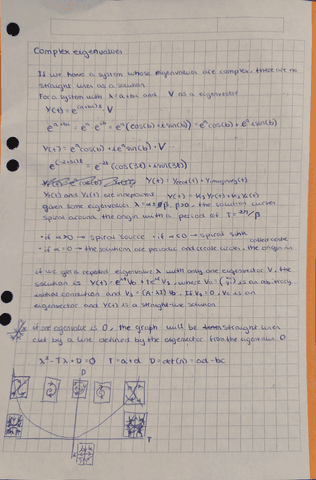 Complex eigenvalues
If we have a system whose eigenvalues are complex, there are no
straight lines as a solution.
For a system with λ=a+bi and V as a eigenvector
Y(t) = e^(a+bi)t V
e^(a+bi) = e^a e^ib = e^a(cos(b)+isin(b)) = e^a cos(b) + e^a i sin(b)
Y(t) = e^a cos(b) + i e^a sin(b) · V
e^(-2+3i)t = e^-2t (cos(3t)+isin(3t))
Y(t) = Yreal(t) + Yimaginary(t)
Y(t) and Y(t) are independent Y(t) = K1 Y1(t) + K2 Y2(t)
given some eigenvalue λ = α ± iβ, β>0, the solution curves
spiral around the origin with a period of T = 2π/β
• if α>0 → spiral source • if α<0 → spiral sink
called center
• if α=0 → the solutions are periodic and create circles, the origin is
if we get a repeated eigenvalue λ with only one eigenvector V, the
solution is Y(t) = e^λt V0 + te^λt V1, where V0 = is an arbitrary
initial condition and V1 = (A-λI) V0. If V1 = 0, V0 is an
eigenvector and Y(t) is a straight-line solution
if one eigenvalue is 0, the graph will be straight lines
cut by a line defined by the eigenvector from the eigenval. 0
λ² - Tλ + D = 0 T = a+d D = det(A) = ad - bc
D
T